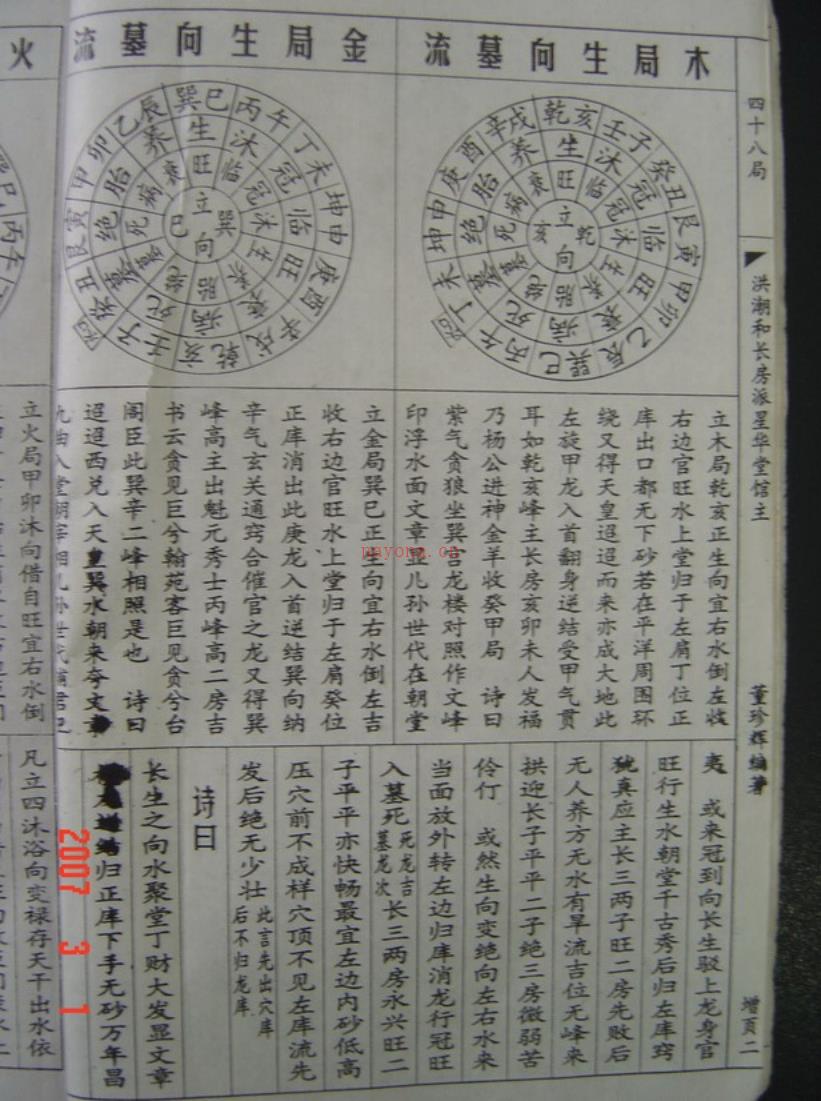 四十八局
洪潮和长房派星华堂馆主
董珍辉编著
增页二
木局生向墓流
立向
乾
亥
旺
衰
病
死
墓
绝
胎
养
生
沐
冠
临
生
沐
冠
临
旺
衰
病
死
墓
绝
胎
养
乾亥
壬子
癸丑
艮寅
甲卯
乙辰
巽巳
丙午
丁未
坤申
庚酉
辛戌
立木局乾亥正生向宜右水倒左收
右边官旺水上堂归于左肩丁位正
库出口都无下砂若在平洋周围环
绕又得天皇迢迢而来亦成大地此
左旋甲龙入首翻身逆结受甲气贯
耳如乾亥峰主长房亥卯未人发福
乃杨公进神金羊收癸甲局 诗曰
紫气贪狼坐巽宫龙楼对照作文峰
印浮水面文章显儿孙世代在朝堂
金局生向墓流
立向
巽
巳
旺
衰
病
死
墓
绝
胎
养
生
沐
冠
临
生
沐
冠
临
旺
衰
病
死
墓
绝
胎
养
巽巳
丙午
丁未
坤申
庚酉
辛戌
乾亥
壬子
癸丑
艮寅
甲卯
乙辰
立金局巽巳正生向宜右水倒左吉
收右边官旺水上堂归于左肩癸位
正库消出此庚龙入首逆结巽向纳
辛气玄关通窍合催官之龙又得巽
峰高主出魁元秀士丙峰高二房吉
书云贪见巨兮翰苑客巨见贪兮台
阁臣此巽辛二峰相照是也 诗曰
迢迢西兑入天皇巽水朝来夸文章
夷 或来冠到向长生驳上龙身官
旺行生水朝堂千古秀后归左库窍
犹真应主长三两子旺二房先败后
无人养方无水有旱流吉位无峰来
拱迎长子平平二子绝三房微弱苦
伶仃 或然生向变绝向左右水来
当面放外转左边归库消龙行冠旺
入墓死死龙吉墓龙次长三两房永兴旺二
子平平亦快畅最宜左边内砂低高
压穴前不成样穴顶不见左库流先
发后绝无少壮此言先出穴库后不归龙库
诗曰
长生之向水聚堂丁财大发显文章
归正库下手无砂万年昌
火
巽巳
丙午
立火局甲卯沐向借自旺宜右水倒
凡立四沐浴向变禄存天干出水依
nayona.cn
2007 3 1